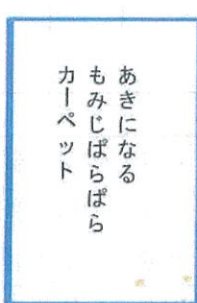 あきになる
もみじぱらぱら
カーペット